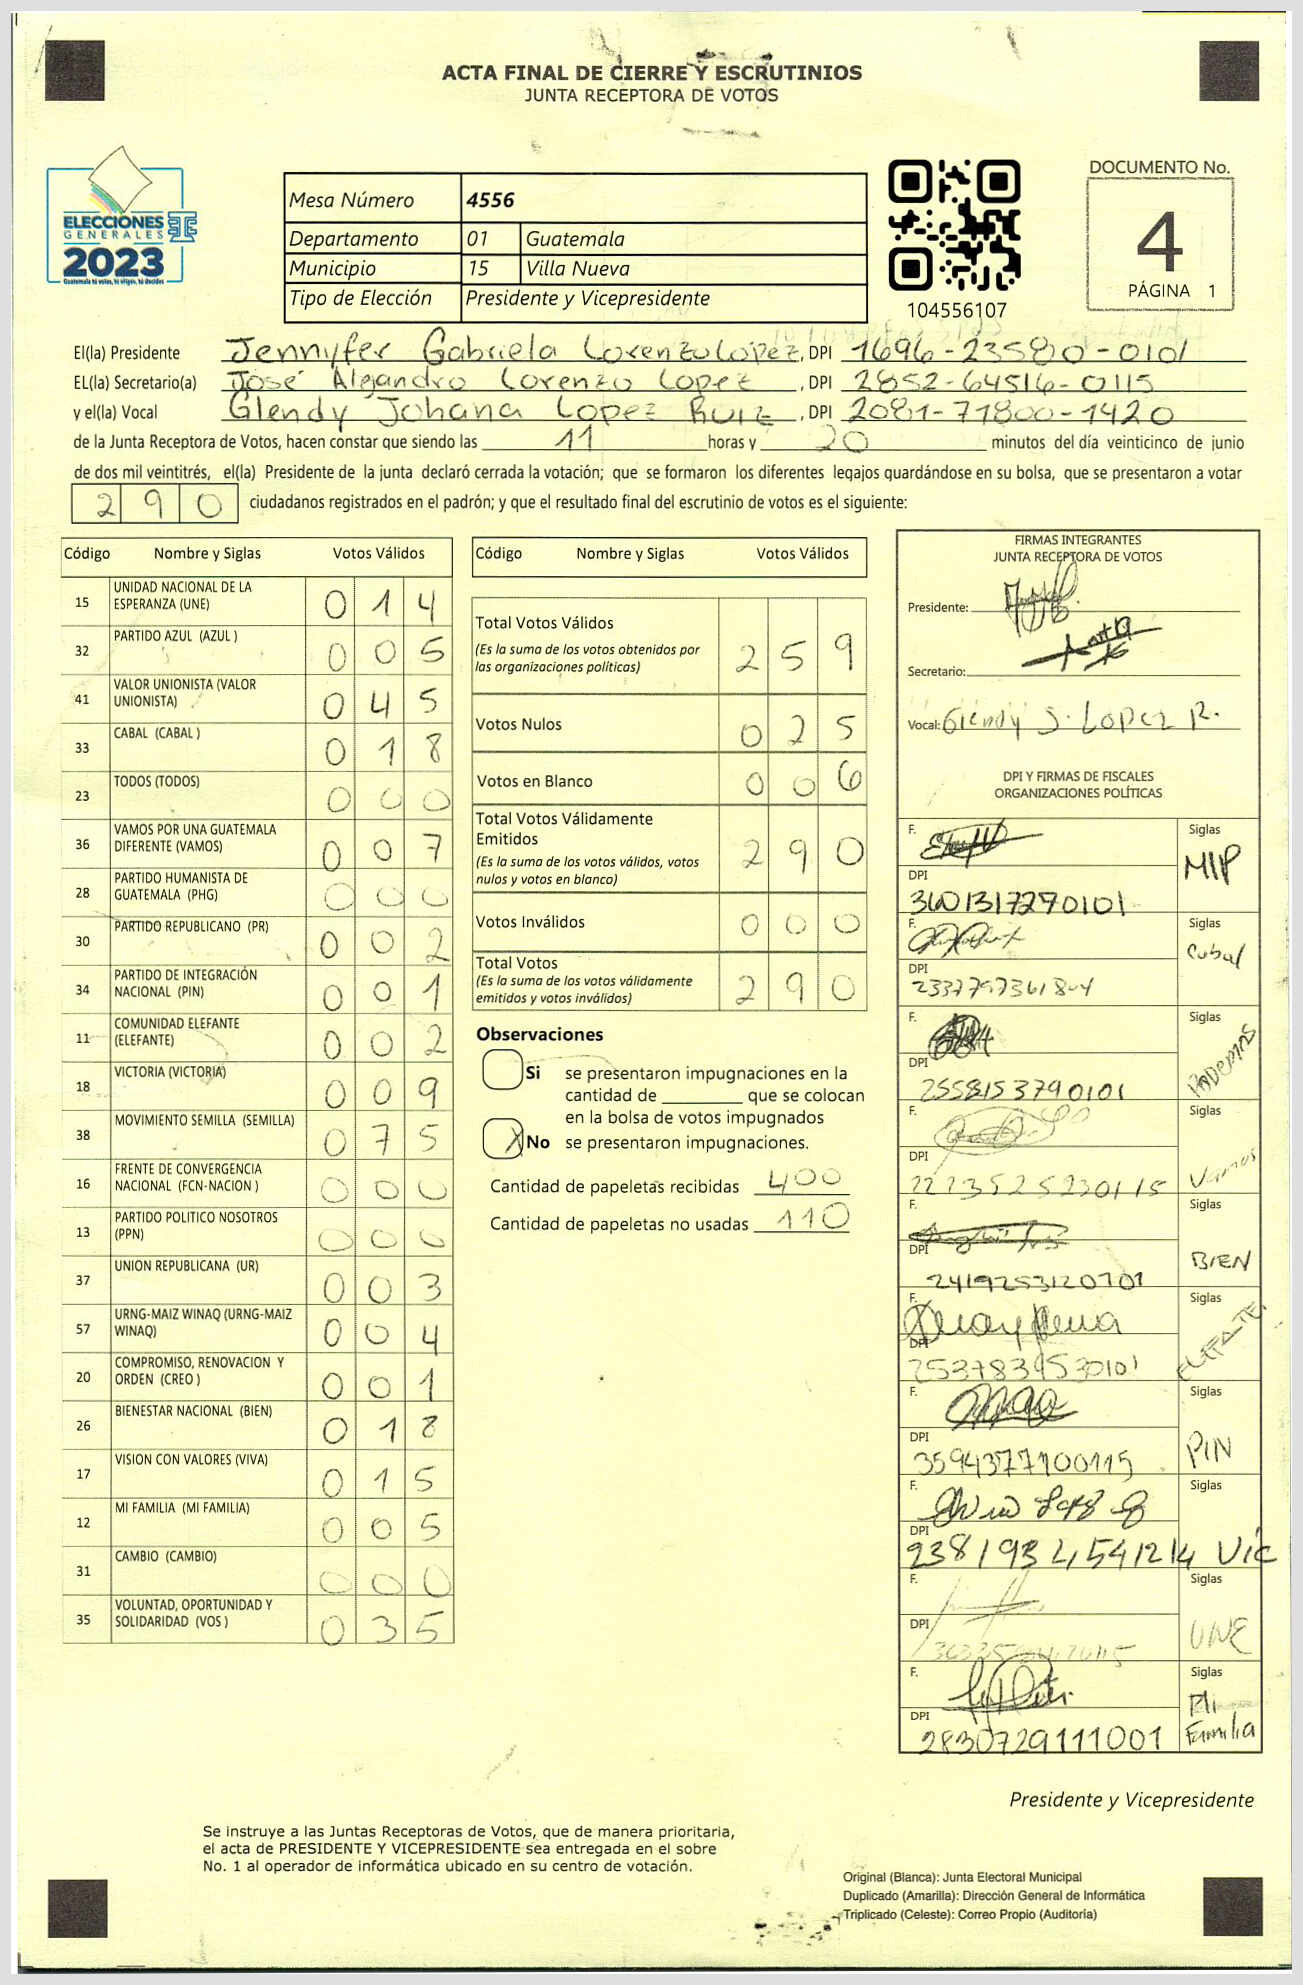 ACTA FINAL DE CIERRE Y ESCRUTINIOS
JUNTA RECEPTORA DE VOTOS
ELECCIONES
GENERALES
2023
Guatemala tú votas, tú eliges, tú decides
Mesa Número 4556
Departamento 01 Guatemala
Municipio 15 Villa Nueva
Tipo de Elección Presidente y Vicepresidente
104556107
DOCUMENTO No.
4
PÁGINA 1
El(la) Presidente Jennyfer Gabriela Lorenzo López, DPI 1696-23580-0101
EL(la) Secretario(a) José Alejandro Lorenzo Lopez, DPI 2852-64516-0115
y el(la) Vocal Glendy Johana Lopez Ruiz, DPI 2081-71800-1420
de la Junta Receptora de Votos, hacen constar que siendo las 11 horas y 20 minutos del día veinticinco de junio
de dos mil veintitrés, el(la) Presidente de la junta declaró cerrada la votación; que se formaron los diferentes legajos quardándose en su bolsa, que se presentaron a votar
290 ciudadanos registrados en el padrón; y que el resultado final del escrutinio de votos es el siguiente:
Código Nombre y Siglas Votos Válidos
15 UNIDAD NACIONAL DE LA ESPERANZA (UNE) 014
32 PARTIDO AZUL (AZUL ) 005
41 VALOR UNIONISTA (VALOR UNIONISTA) 045
33 CABAL (CABAL ) 018
23 TODOS (TODOS) 000
36 VAMOS POR UNA GUATEMALA DIFERENTE (VAMOS) 007
28 PARTIDO HUMANISTA DE GUATEMALA (PHG) 000
30 PARTIDO REPUBLICANO (PR) 002
34 PARTIDO DE INTEGRACIÓN NACIONAL (PIN) 001
11 COMUNIDAD ELEFANTE (ELEFANTE) 002
18 VICTORIA (VICTORIA) 009
38 MOVIMIENTO SEMILLA (SEMILLA) 075
16 FRENTE DE CONVERGENCIA NACIONAL (FCN-NACION ) 000
13 PARTIDO POLITICO NOSOTROS (PPN) 000
37 UNION REPUBLICANA (UR) 003
57 URNG-MAIZ WINAQ (URNG-MAIZ WINAQ) 004
20 COMPROMISO, RENOVACION Y ORDEN (CREO ) 001
26 BIENESTAR NACIONAL (BIEN) 018
17 VISION CON VALORES (VIVA) 015
12 MI FAMILIA (MI FAMILIA) 005
31 CAMBIO (CAMBIO) 000
35 VOLUNTAD, OPORTUNIDAD Y SOLIDARIDAD (VOS ) 035
Código Nombre y Siglas Votos Válidos
Total Votos Válidos 259
(Es la suma de los votos obtenidos por
las organizaciones políticas)
Votos Nulos 025
Votos en Blanco 006
Total Votos Válidamente
Emitidos 290
(Es la suma de los votos válidos, votos
nulos y votos en blanco)
Votos Inválidos 000
Total Votos 290
(Es la suma de los votos válidamente
emitidos y votos inválidos)
Observaciones
Si se presentaron impugnaciones en la
cantidad de ________ que se colocan
en la bolsa de votos impugnados
X No se presentaron impugnaciones.
Cantidad de papeletas recibidas 400
Cantidad de papeletas no usadas 110
FIRMAS INTEGRANTES
JUNTA RECEPTORA DE VOTOS
Presidente:
Secretario:
Vocal: Glendy J. Lopez R.
DPI Y FIRMAS DE FISCALES
ORGANIZACIONES POLÍTICAS
F. Siglas
MLP
DPI
3601317270101
F. Siglas
Cabal
DPI
F. Siglas
DPI
F. Siglas
Vamos
DPI
2223525230115
F. Siglas
BIEN
DPI
2419253120701
F. Siglas
DPI
F. Siglas
PIN
DPI
3594377100115
F. Siglas
Vic
DPI
F. Siglas
UNE
DPI
F. Siglas
Mi
Familia
DPI
2830729111001
Presidente y Vicepresidente
Se instruye a las Juntas Receptoras de Votos, que de manera prioritaria,
el acta de PRESIDENTE Y VICEPRESIDENTE sea entregada en el sobre
No. 1 al operador de informática ubicado en su centro de votación.
Original (Blanca): Junta Electoral Municipal
Duplicado (Amarilla): Dirección General de Informática
Triplicado (Celeste): Correo Propio (Auditoría)